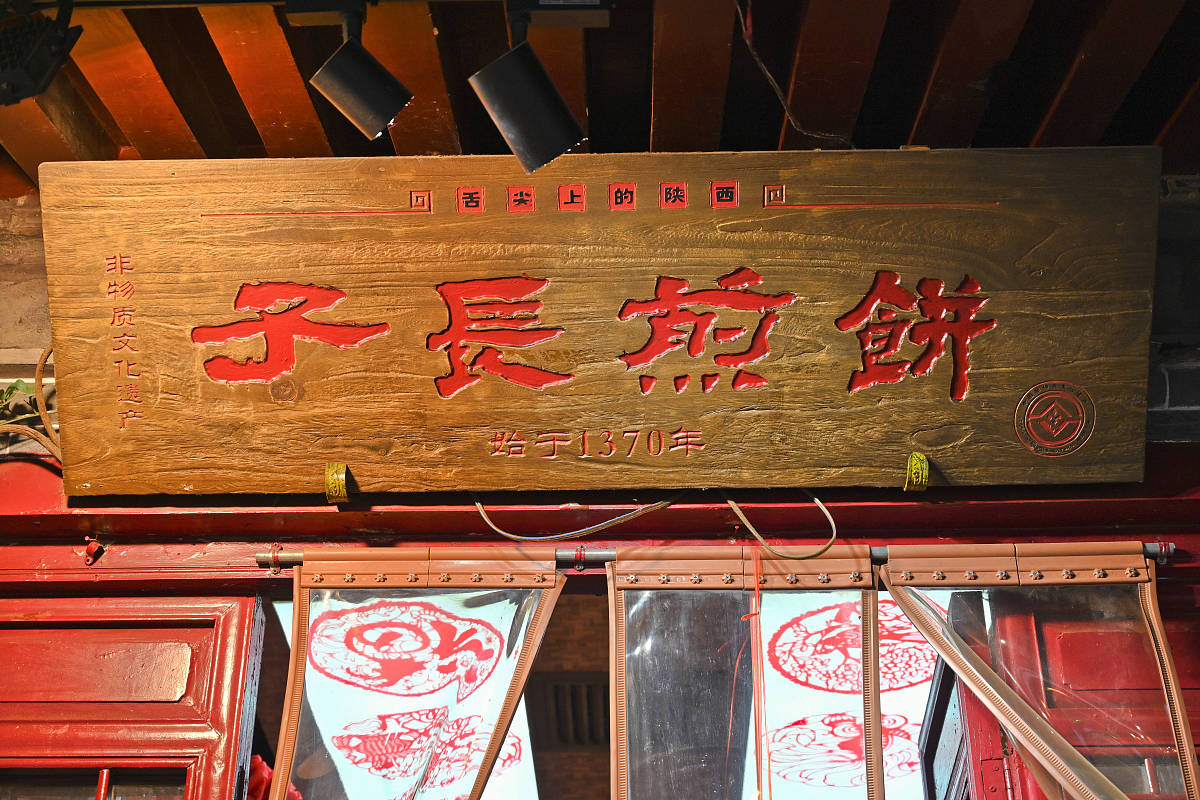 舌尖上的陕西
非物质文化遗产
子長煎餅
始于1370年